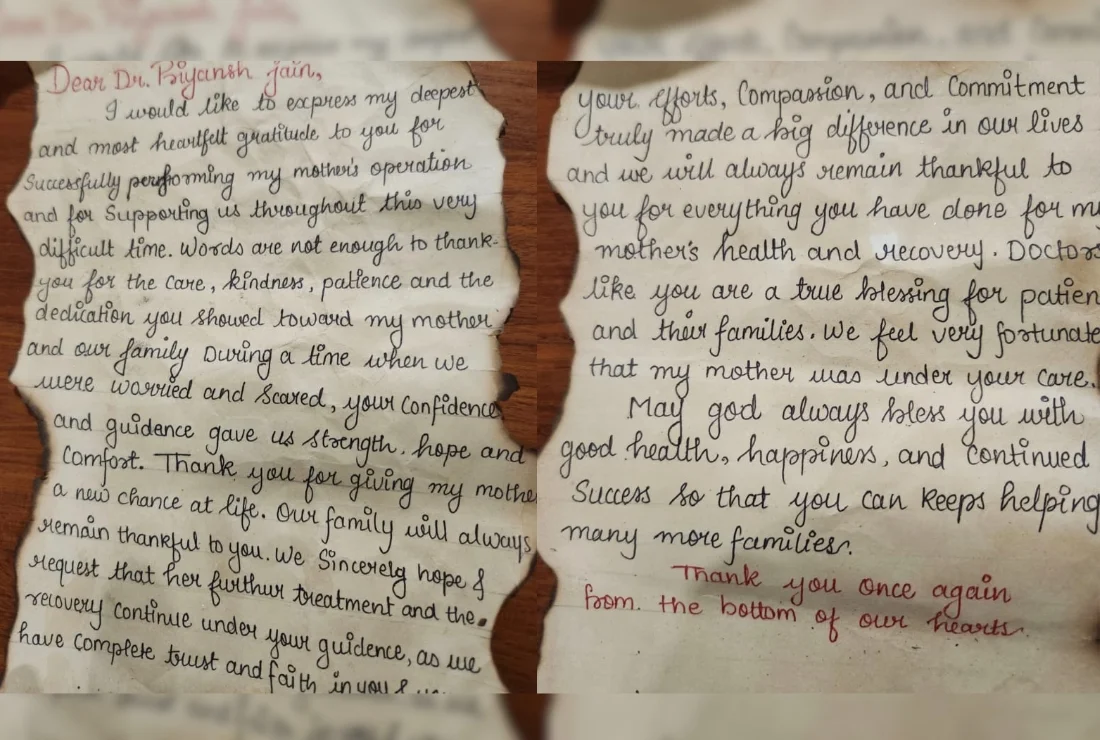 Dear Dr. Priyansh Jain,
I would like to express my deepest
and most heartfelt gratitude to you for
Successfully performing my mother's operation
and for Supporting us throughout this very
difficult time. Words are not enough to thank-
you for the care, kindness, patience and the
dedication you showed toward my mother
and our family During a time when we
were worried and Scared, your Confidence
and guidence gave us strength, hope and
Comfort. Thank you for giving my mothe
a new chance at life. Our family will always
remain thankful to you. We Sincerely hope &
request that her furthur treatment and the
recovery continue under your guidence, as we
have complete trust and faith in you &
your efforts, Compassion, and Commitment
truly made a big difference in our lives
and we will always remain thankful to
you for everything you have done for my
mother's health and recovery. Doctors
like you are a true blessing for patien
and their families. We feel very fortunate
that my mother was under your care.
May god always bless you with
good health, happiness, and Continued
Success so that you can keeps helping
many more families.
Thank you once again
from the bottom of our hearts.